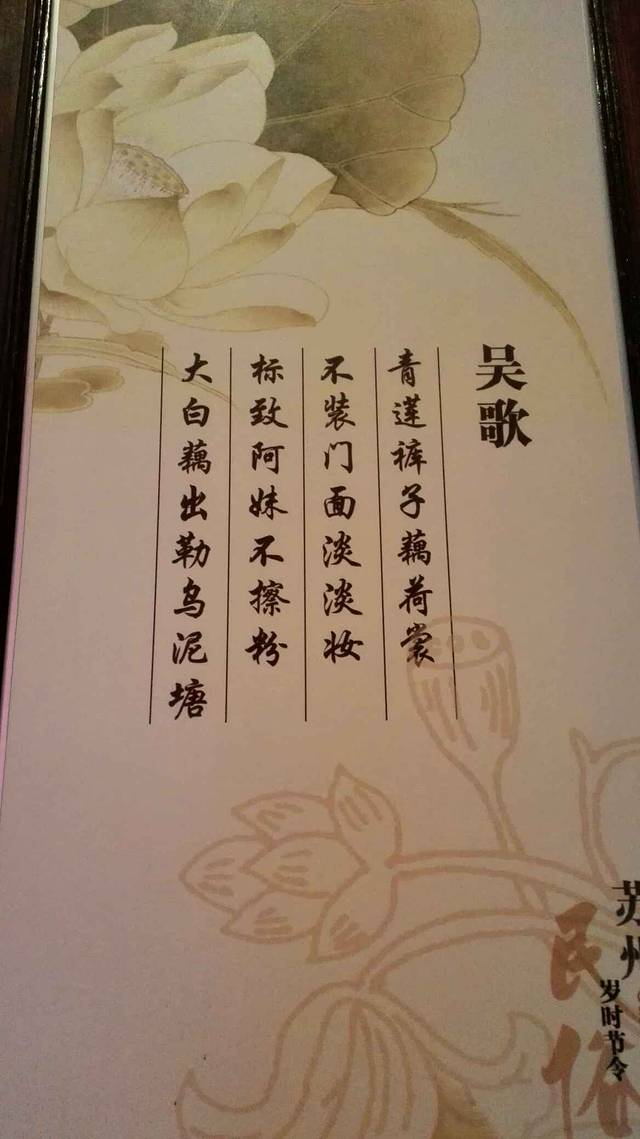 吴歌
青莲裤子藕荷裳
不装门面淡淡妆
标致阿妹不擦粉
大白藕出勒乌泥塘
苏州
民俗
岁时节令